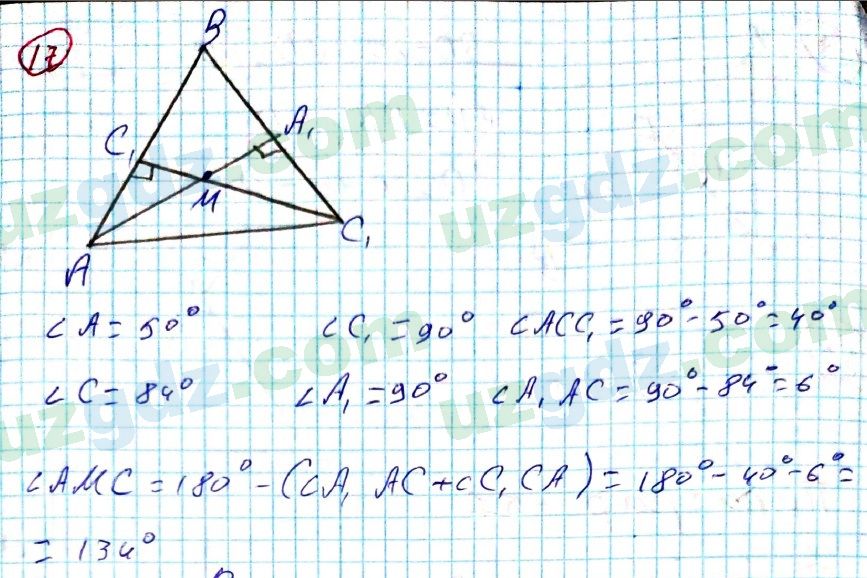 17
B
C₁ A₁
M
A C₁
∠A = 50° ∠C₁ = 90° ∠ACC₁ = 90° - 50° = 40°
∠C = 84° ∠A₁ = 90° ∠A₁AC = 90° - 84° = 6°
∠AMC = 180° - (∠A₁AC + ∠C₁CA) = 180° - 40° - 6° =
= 134°
uzgdz.com
uzgdz.com
uzgdz.com
uzgdz.com